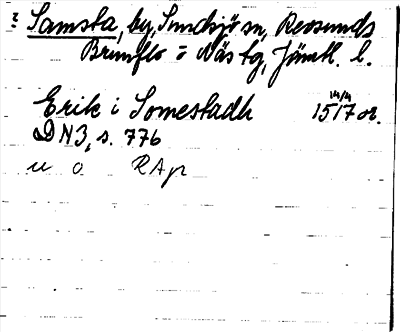 ? Samsta, by, Sundsjö sn, Revsunds
Brunflo o Näs tg, Jämtl. l.
Erik i Somestadh 14/4 1517 or.
DN3, s. 776
u o RAp